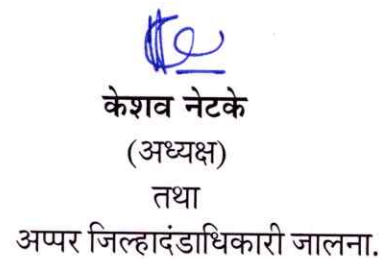 केशव नेटके
(अध्यक्ष)
तथा
अप्पर जिल्हादंडाधिकारी जालना.